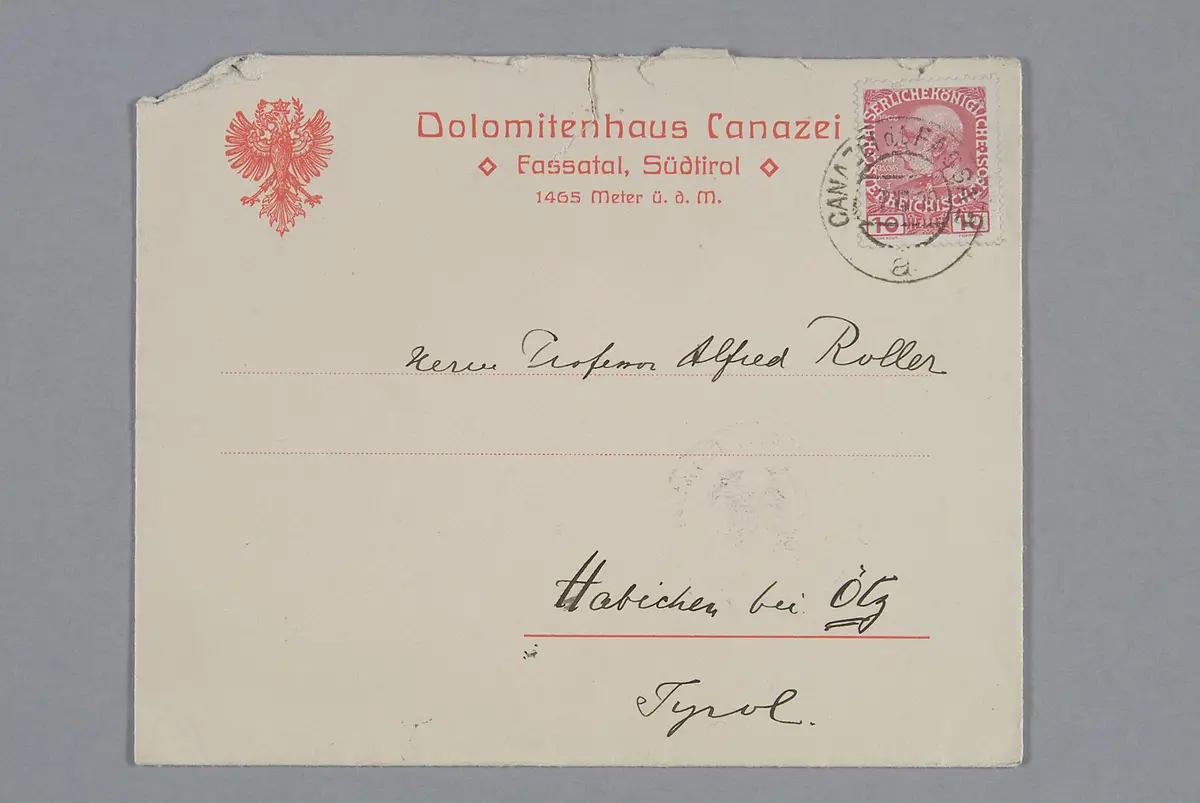 Dolomitenhaus Canazei
Fassatal, Südtirol
1465 Meter ü. d. M.
KAISERLICHEKÖNIGLICHE
ÖSTERREICHISCHE
10 10
CANAZEI
a
Herrn Professor Alfred Roller
Habichen bei Ötz
Tyrol.